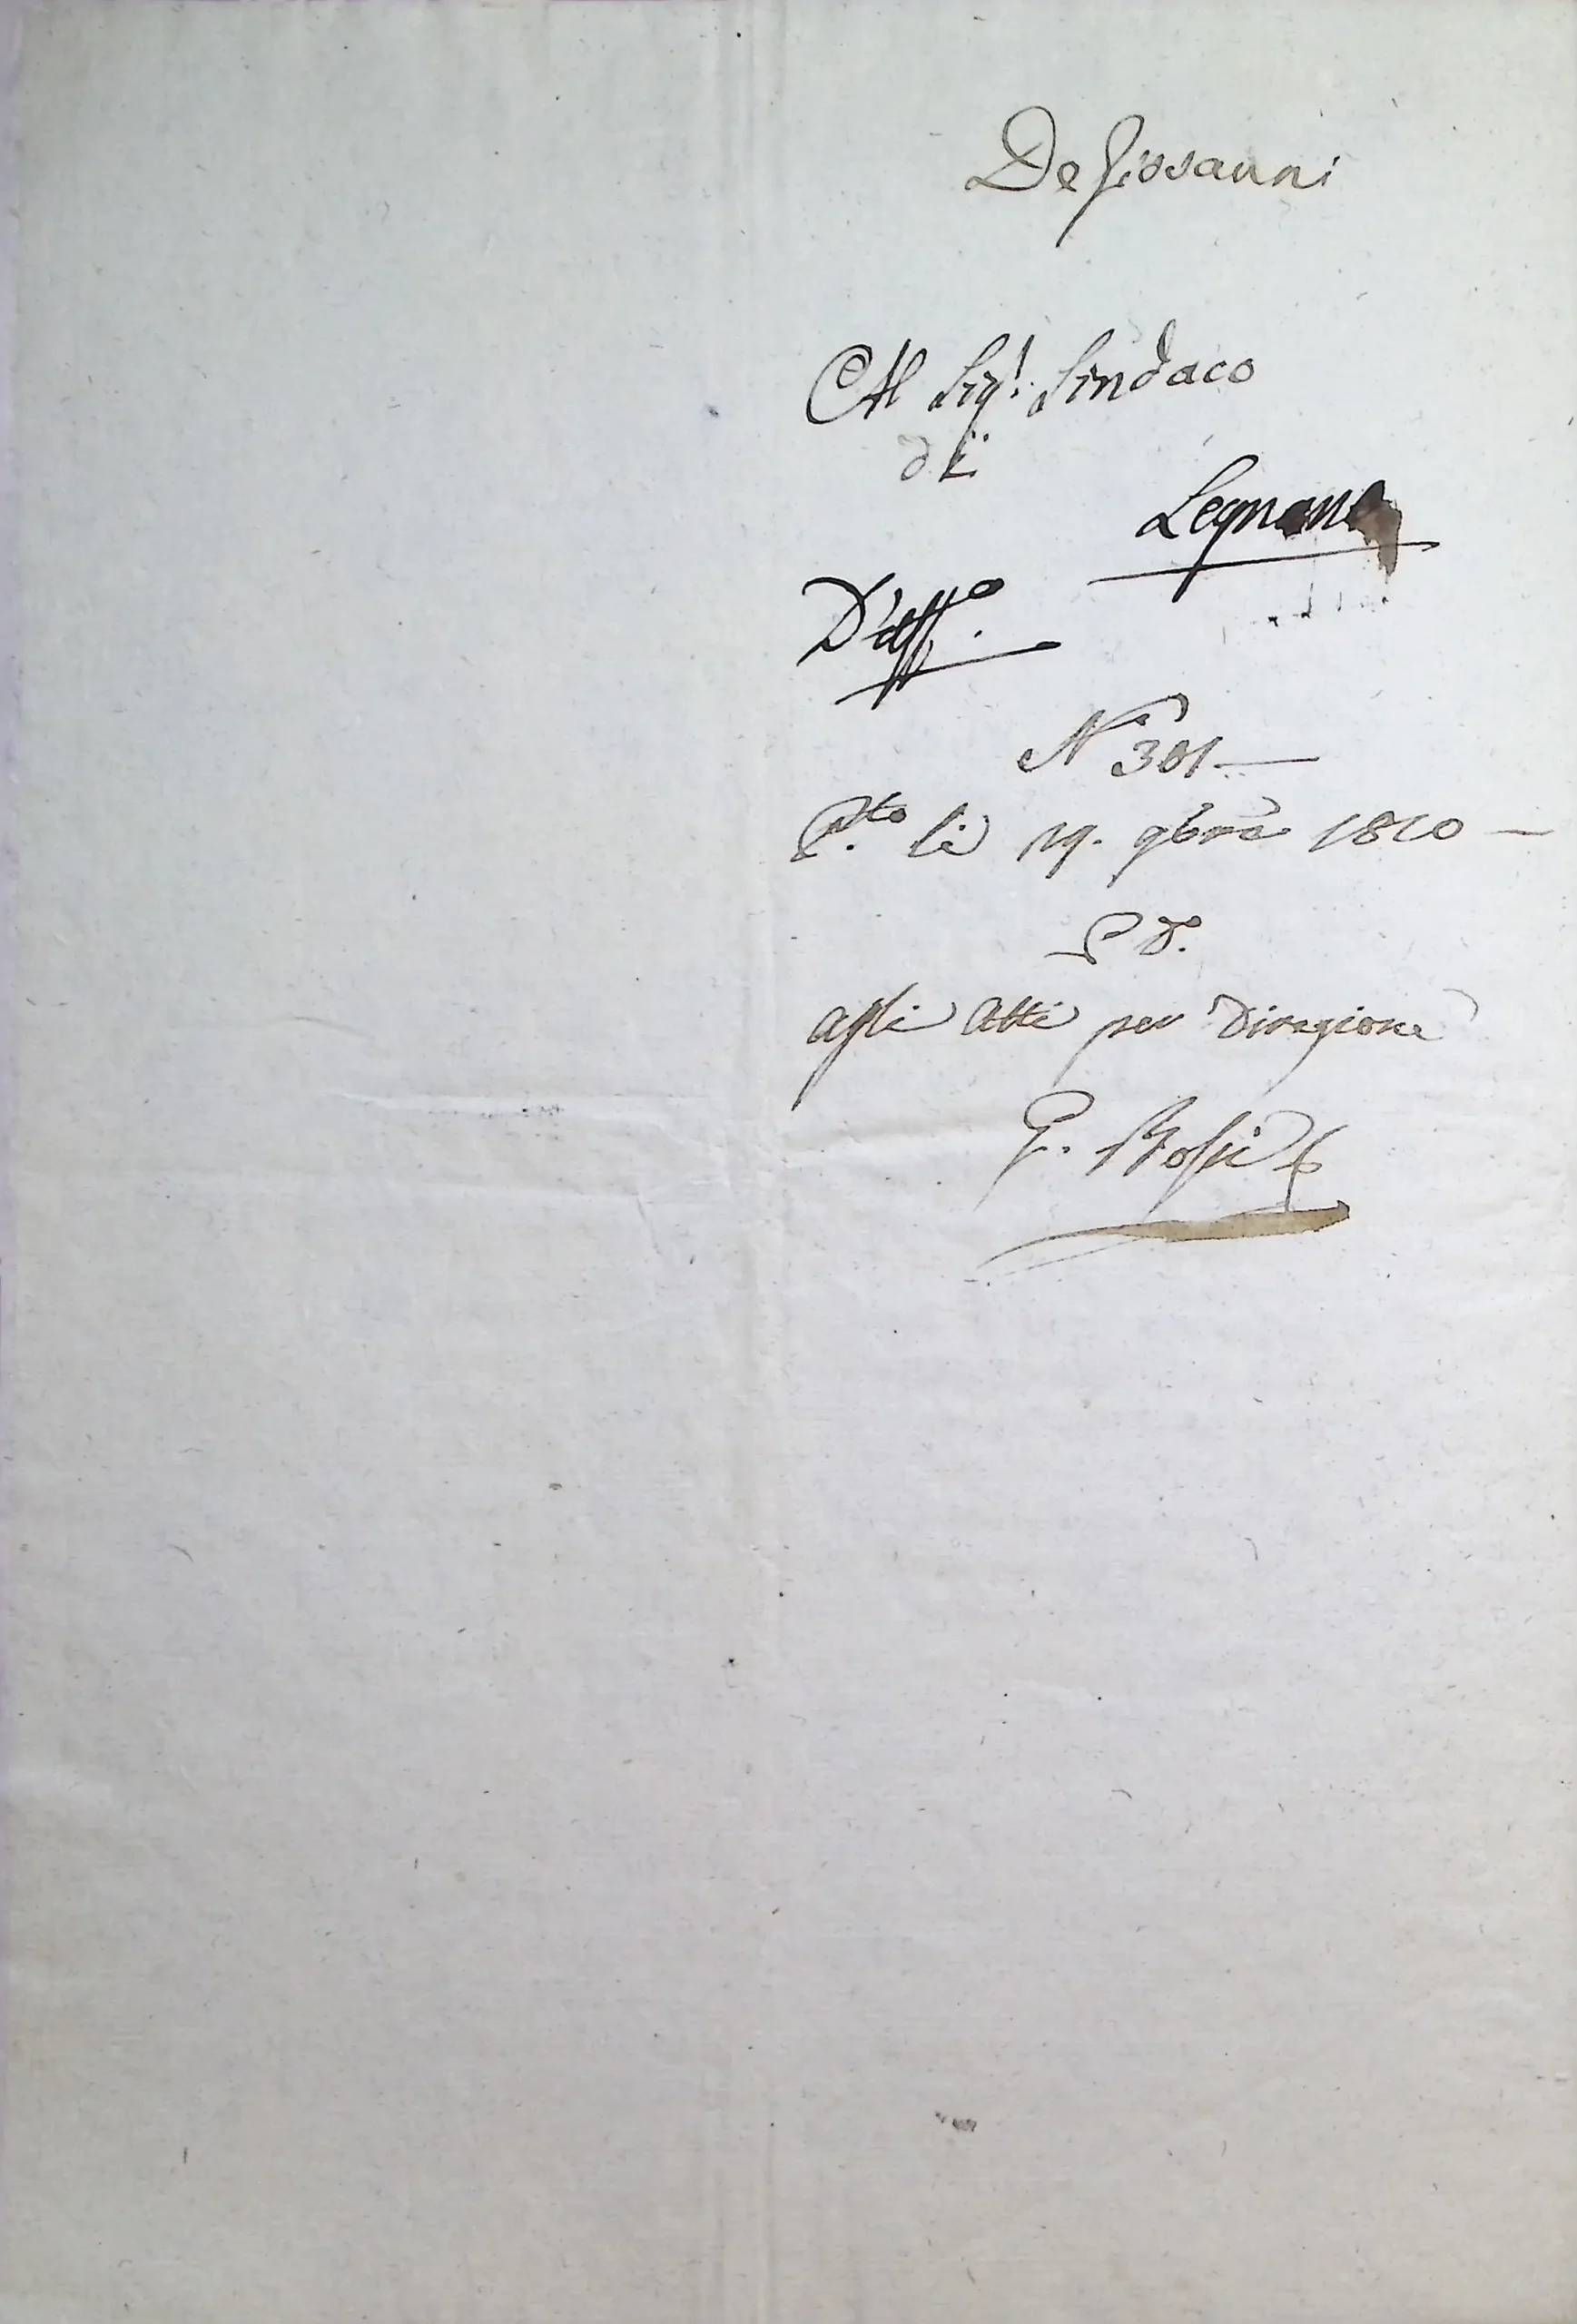 De Giovanni
Al Sig.r Sindaco
di
Legnano
D'uff.o
N 301
P.to li 19. 9bre 1810
P d.
agli Atti per Direzione
G. Rossi